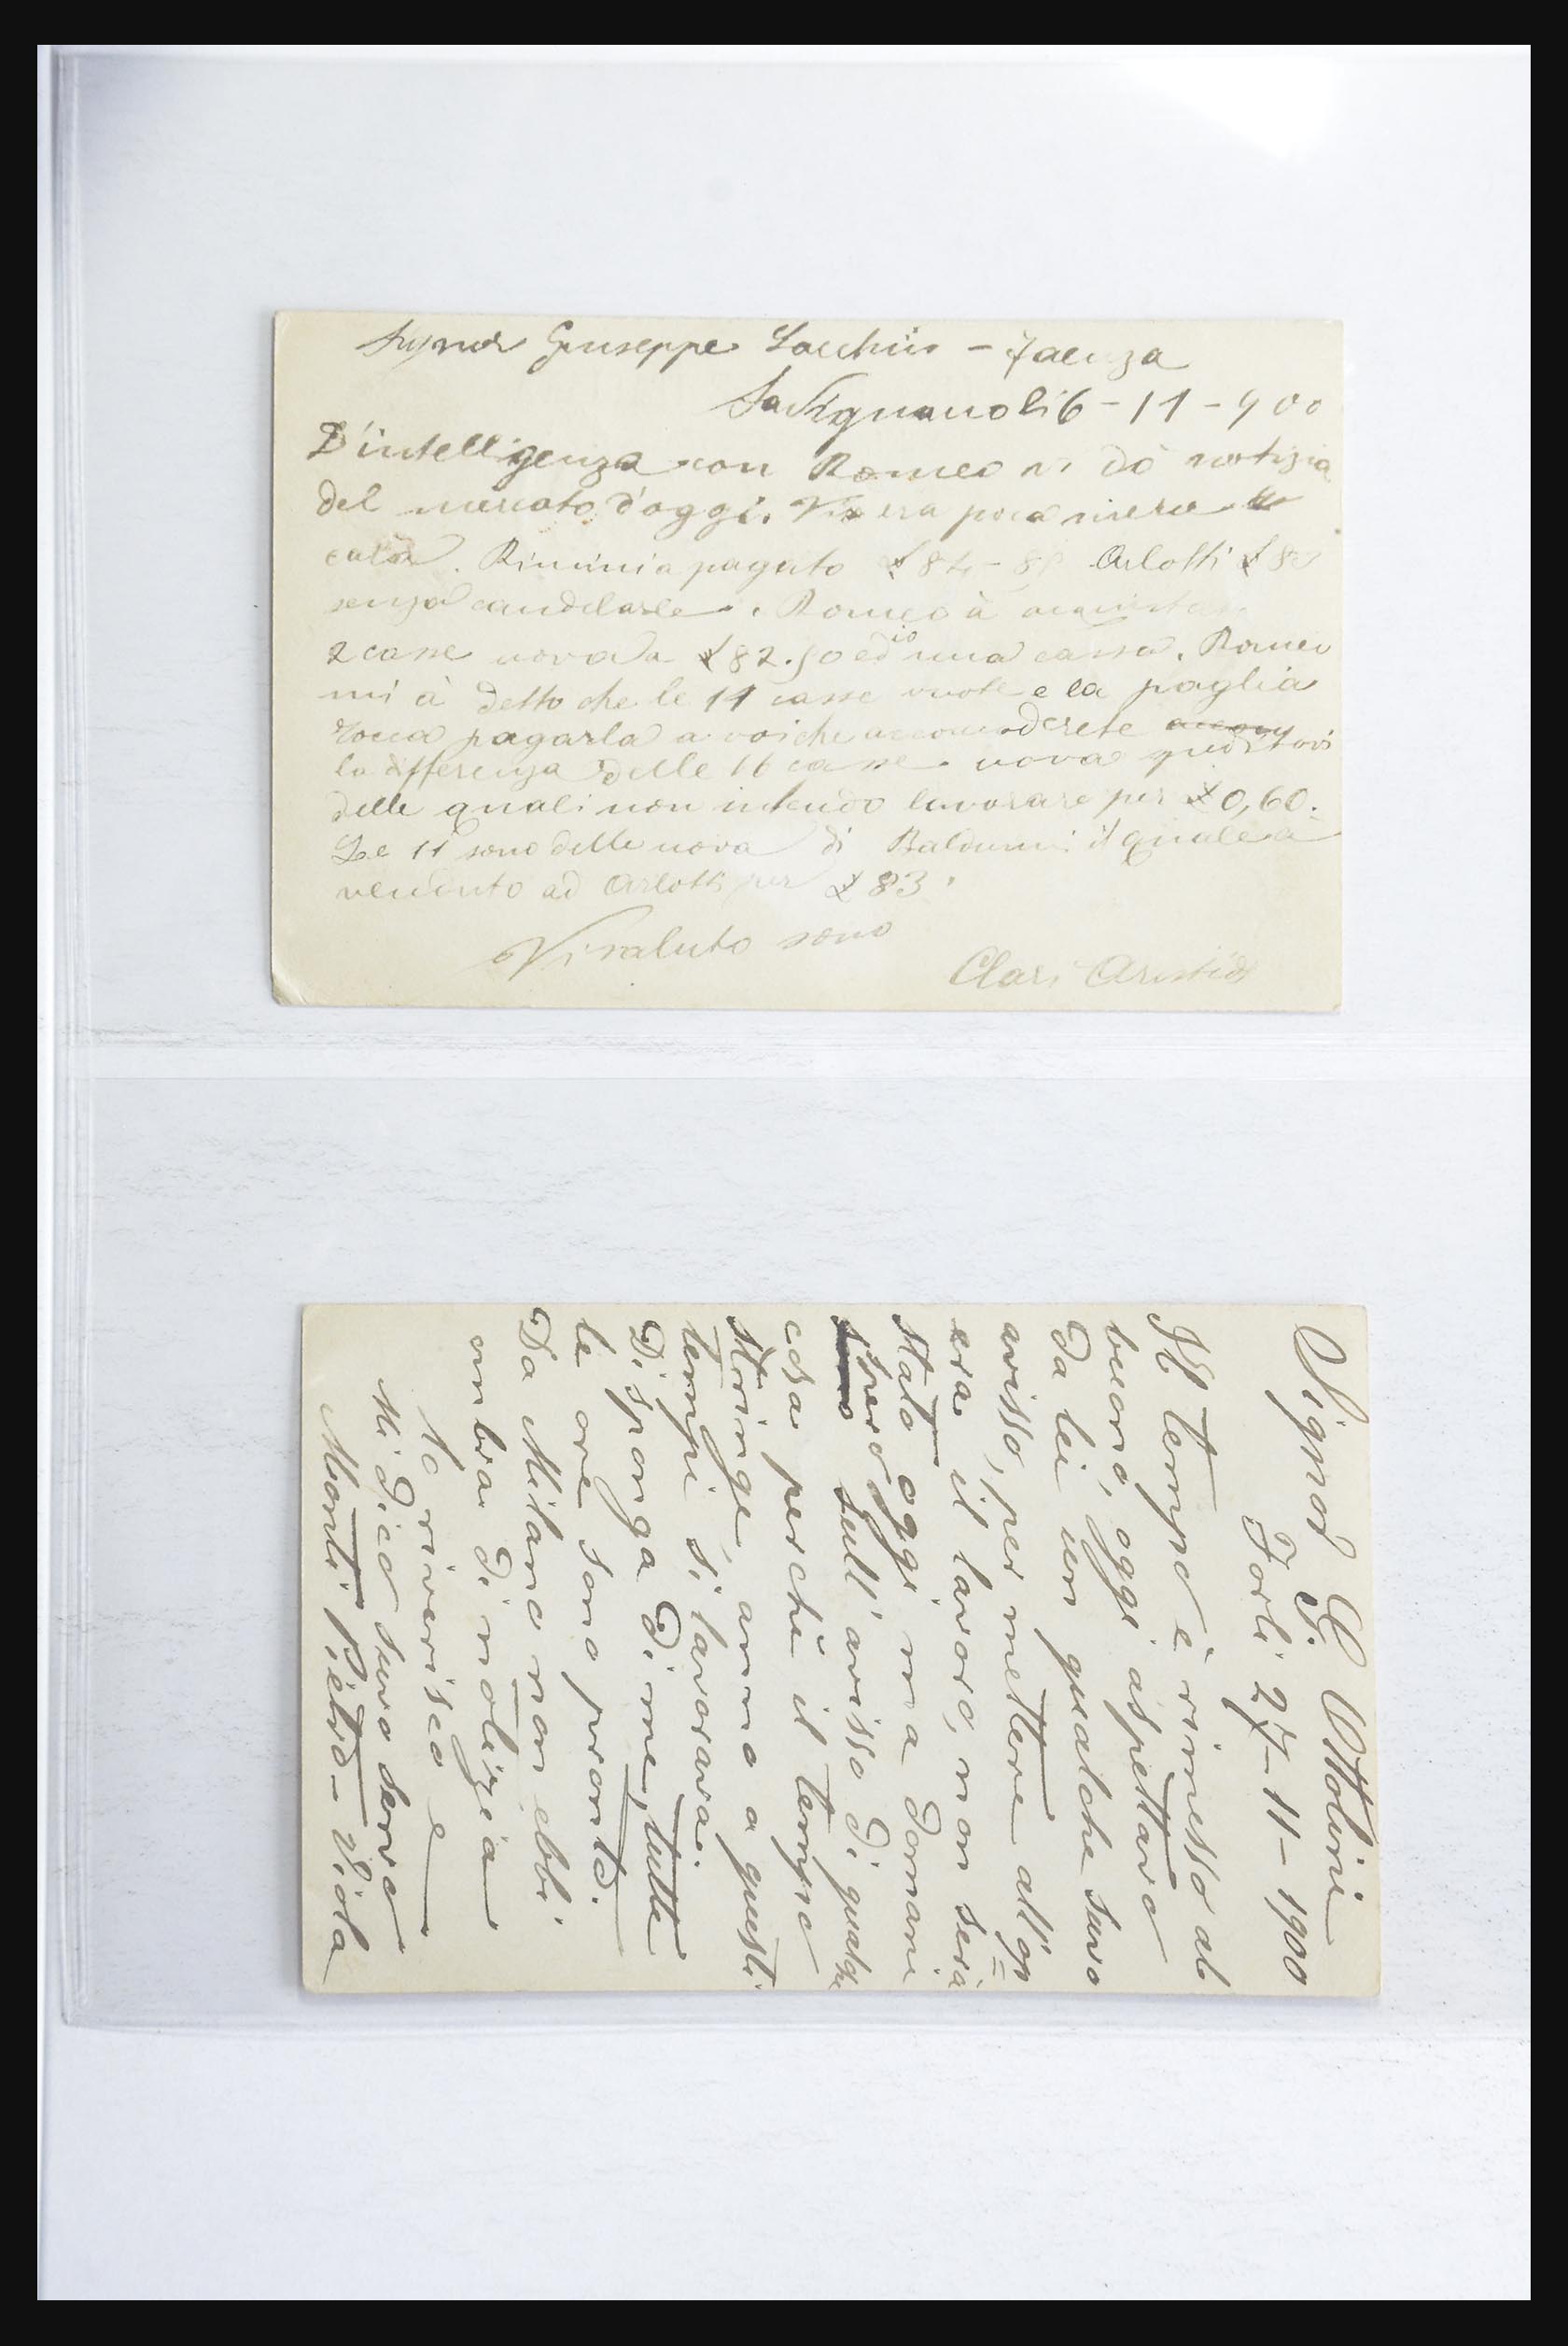 Signor Giuseppe Lacchini - Faenza
Savignano li 6 - 11 - 900
D'intelligenza con Romeo vi dò notizia
del mercato d'oggi. Vi era poca merce e
cara. Rimini a pagato £ 84 - 85 Arlotti £ 83
senza candelarle. Romeo à acquistato
2 casse uova a £ 82.50 ed io una cassa. Romeo
mi à detto che le 11 casse vuote e la paglia
tocca pagarla a voi che accomoderete
la differenza delle 16 casse uova speditovi
delle quali non intendo lavorare per £ 0,60.
Le 11 sono delle uova di Balducci il quale a
venduto ad Arlotti per £ 83.
Vi saluto sono
Clari Aristide
Signor G. Ottolini
Forlì 27 - 11 - 1900
Il tempo è rimesso al
buono, oggi aspettavo
da lei un qualche suvo
avisso, per mettere all'op=
era il lavoro, non serà
stato oggi ma domani
spero sull'avisso di qualche
cosa perchè il tempo
stringe, anno a questi
tempi si lavorava.
Disponga di me, tutte
le ore sono pronto.
Da Milano non ebbi
ombra di notizia
La riverisco e
Mi dico suvo servo
Monti Pietro - Viola